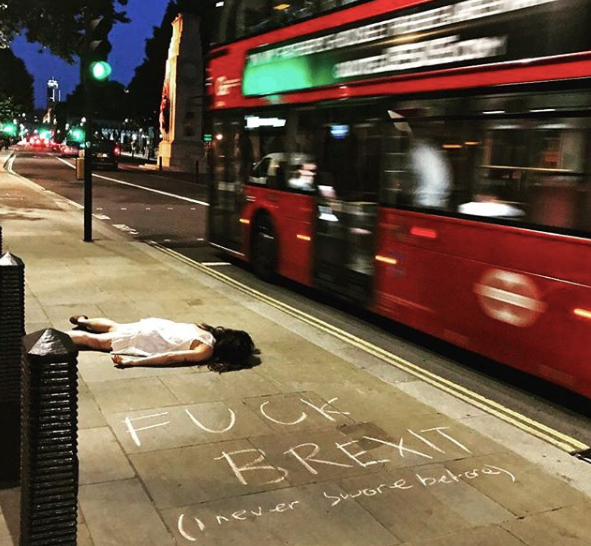 FUCK
BREXIT
(I never swore before)